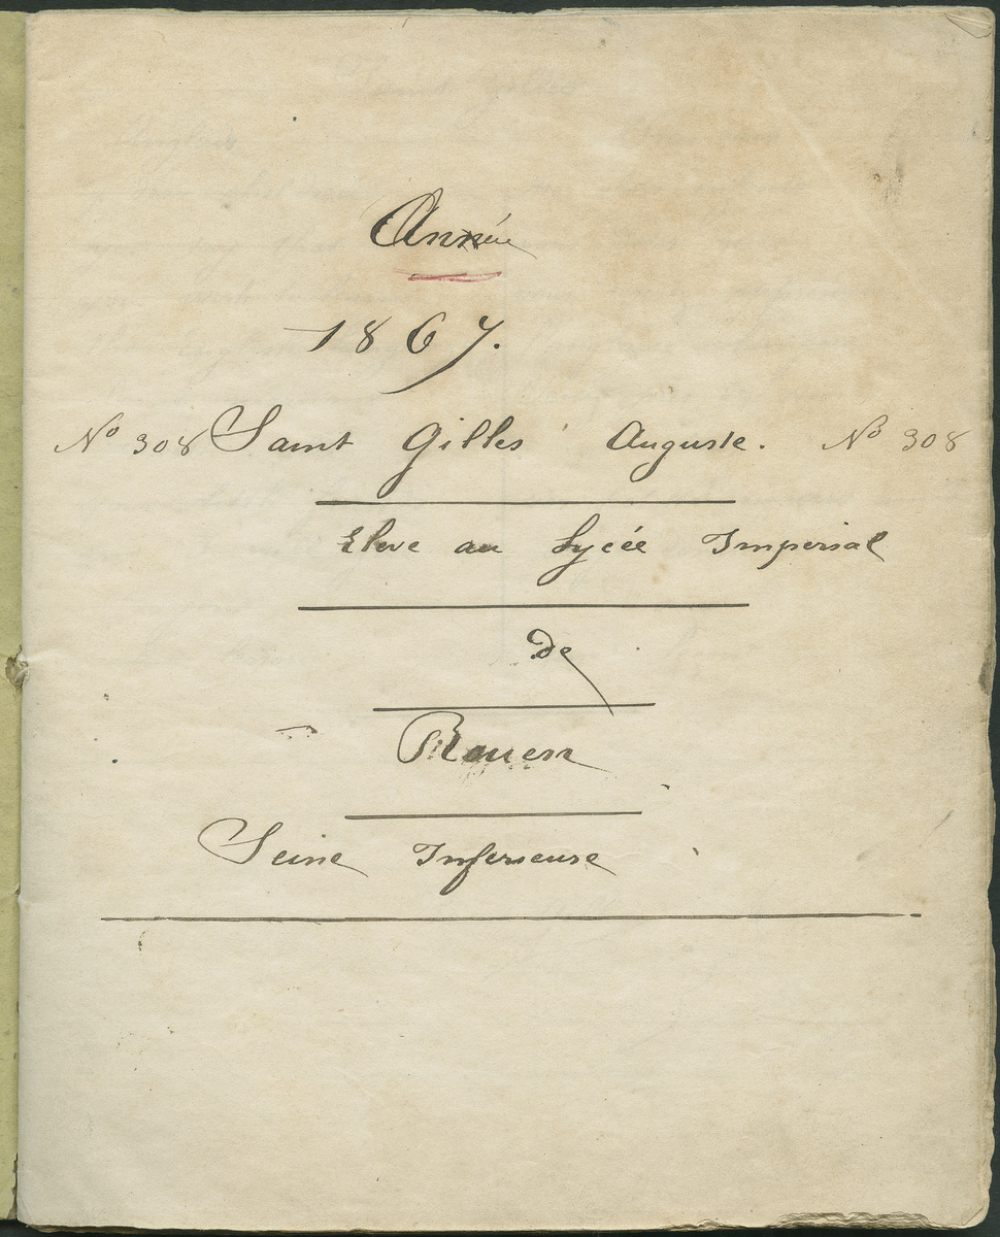 Année
1867.
No 308 Saint Gilles Auguste. No 308
Eleve au Lycée Imperial
de
Rouen
Seine Inferieure